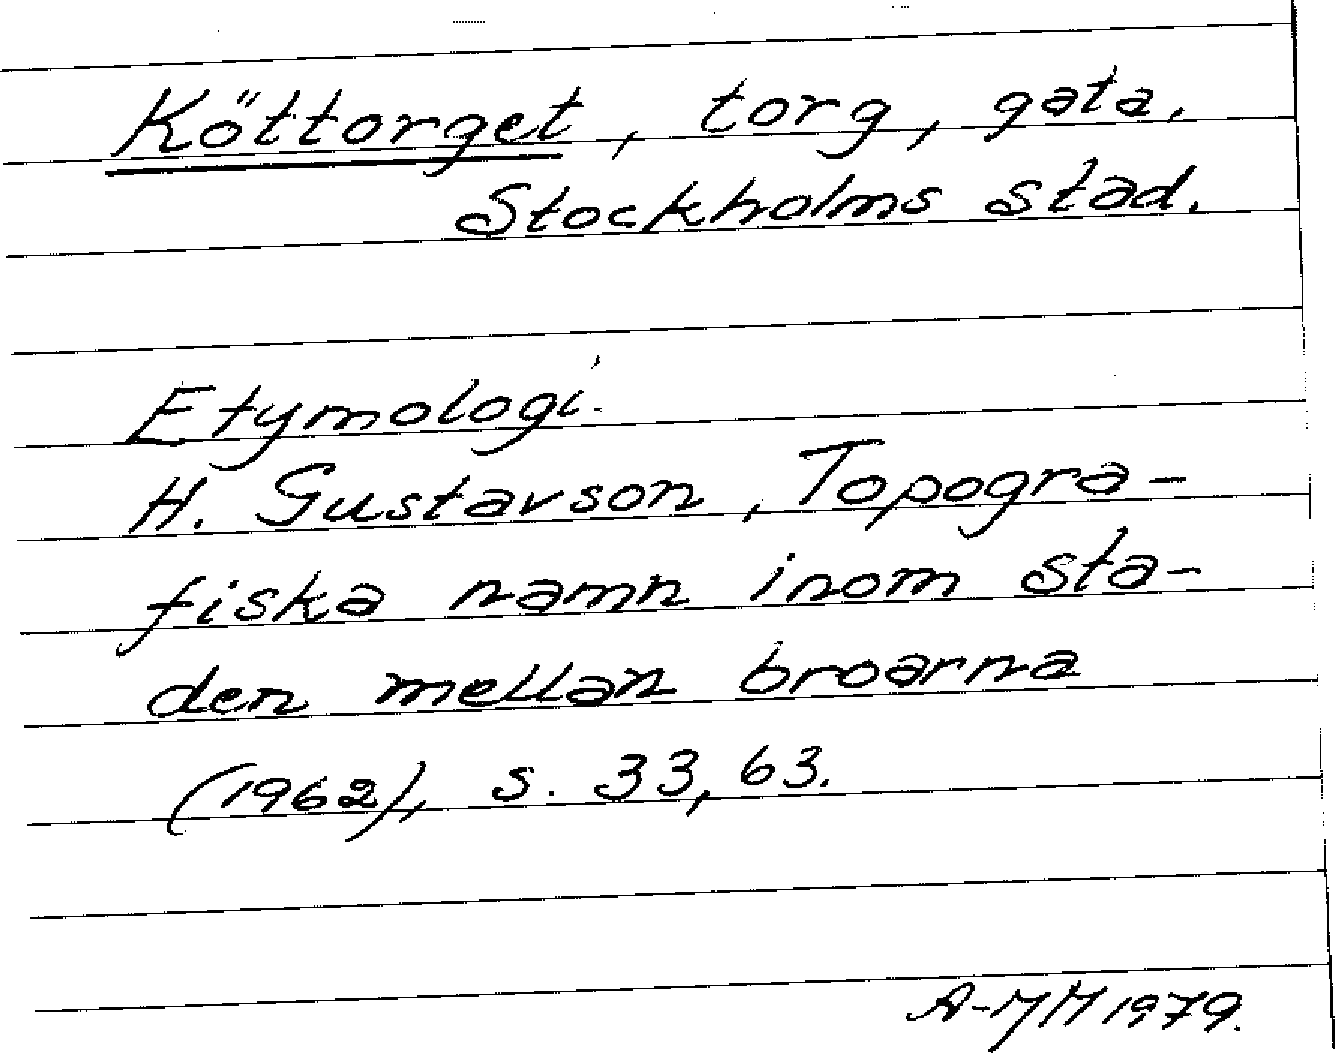 Köttorget, torg, gata.
Stockholms stad.
Etymologi.
H. Gustavson, Topogra-
fiska namn inom sta-
den mellan broarna
(1962), s. 33, 63.
A-MH 1979.